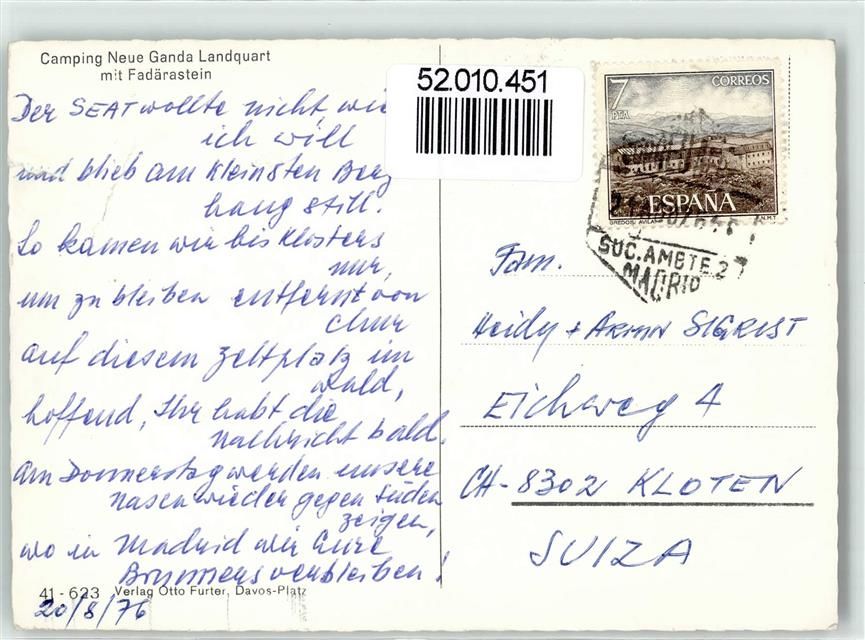 Camping Neue Ganda Landquart
mit Fadärastein
Der SEAT wollte nicht, wie
ich will
und blieb am kleinsten Berg
hang still.
So kamen wir bis Klosters
nur,
um zu bleiben entfernt von
Chur
auf diesem Zeltplatz im
Wald,
hoffend, Ihr habt die
Nachricht bald.
Am Donnerstag werden unsere
Nasen wieder gegen Süden
zeigen,
wo in Madrid wir Eure
verbleiben!
41-623 Verlag Otto Furter, Davos-Platz
20/8/76
52.010.451
7
PTA
CORREOS
ESPAÑA
GREDOS. AVILA
F.N.M.T
SUC. AMBTE. 27
MADRID
Fam.
Heidy + Armin SIGRIST
Eichweg 4
CH-8302 KLOTEN
SUIZA